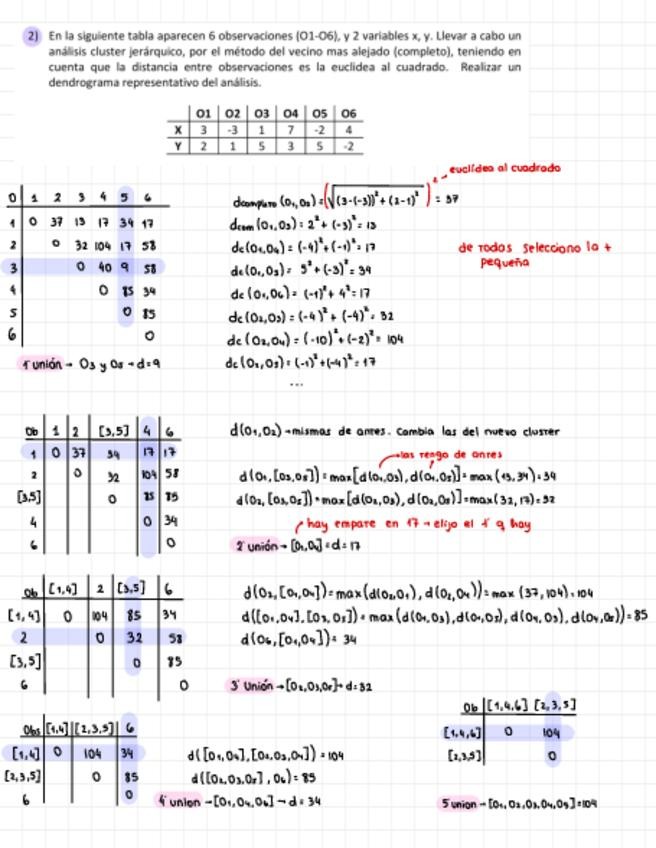 2) En la siguiente tabla aparecen 6 observaciones (O1-O6), y 2 variables x, y. Llevar a cabo un
análisis cluster jerárquico, por el método del vecino mas alejado (completo), teniendo en
cuenta que la distancia entre observaciones es la euclídea al cuadrado. Realizar un
dendrograma representativo del análisis.
O1 O2 O3 O4 O5 O6
X 3 -3 1 7 -2 4
Y 2 1 5 3 5 -2
euclídea al cuadrado
D 1 2 3 4 5 6
1 0 37 13 17 34 17
2 0 32 104 17 58
3 0 40 9 58
4 0 85 34
5 0 85
6 0
1ª unión → O3 y O5 → d=9
dcompleto (O1,O2) = (√(3-(-3))²+(2-1)²)² = 37
dcom (O1,O3) = 2²+(-3)² = 13
dc(O1,O4) = (-4)²+(-1)² = 17
dc(O1,O5) = 5²+(-3)² = 34
dc(O1,O6) = (-1)²+4² = 17
dc(O2,O3) = (-4)²+(-4)² = 32
dc(O2,O4) = (-10)²+(-2)² = 104
dc(O2,O5) = (-1)²+(-4)² = 17
...
de todas selecciono la +
pequeña
Ob 1 2 [3,5] 4 6
1 0 37 34 17 17
2 0 32 104 58
[3,5] 0 85 85
4 0 34
6 0
d(O1,O2) → mismas de antes. Cambia las del nuevo cluster
las tengo de antes
d(O1,[O3,O5]) = max[d(O1,O3), d(O1,O5)] = max(13,34) = 34
d(O2,[O3,O5]) = max[d(O2,O3), d(O2,O5)] = max(32,17) = 32
hay empate en 17 → elijo el 1º q hay
2ª unión → [O1,O4] = d = 17
Ob [1,4] 2 [3,5] 6
[1,4] 0 104 85 34
2 0 32 58
[3,5] 0 85
6 0
d(O2,[O1,O4]) = max(d(O2,O1), d(O2,O4)) = max(37,104) = 104
d([O1,O4],[O3,O5]) = max(d(O1,O3), d(O1,O5), d(O4,O3), d(O4,O5)) = 85
d(O6,[O1,O4]) = 34
3ª Unión → [O2,O3,O5] → d=32
Obs [1,4] [2,3,5] 6
[1,4] 0 104 34
[2,3,5] 0 85
6 0
d([O1,O4],[O2,O3,O4]) = 104
d([O2,O3,O5],O6) = 85
4ª union → [O1,O4,O6] → d = 34
Ob [1,4,6] [2,3,5]
[1,4,6] 0 104
[2,3,5] 0
5 union → [O1,O2,O3,O4,O5] = 104